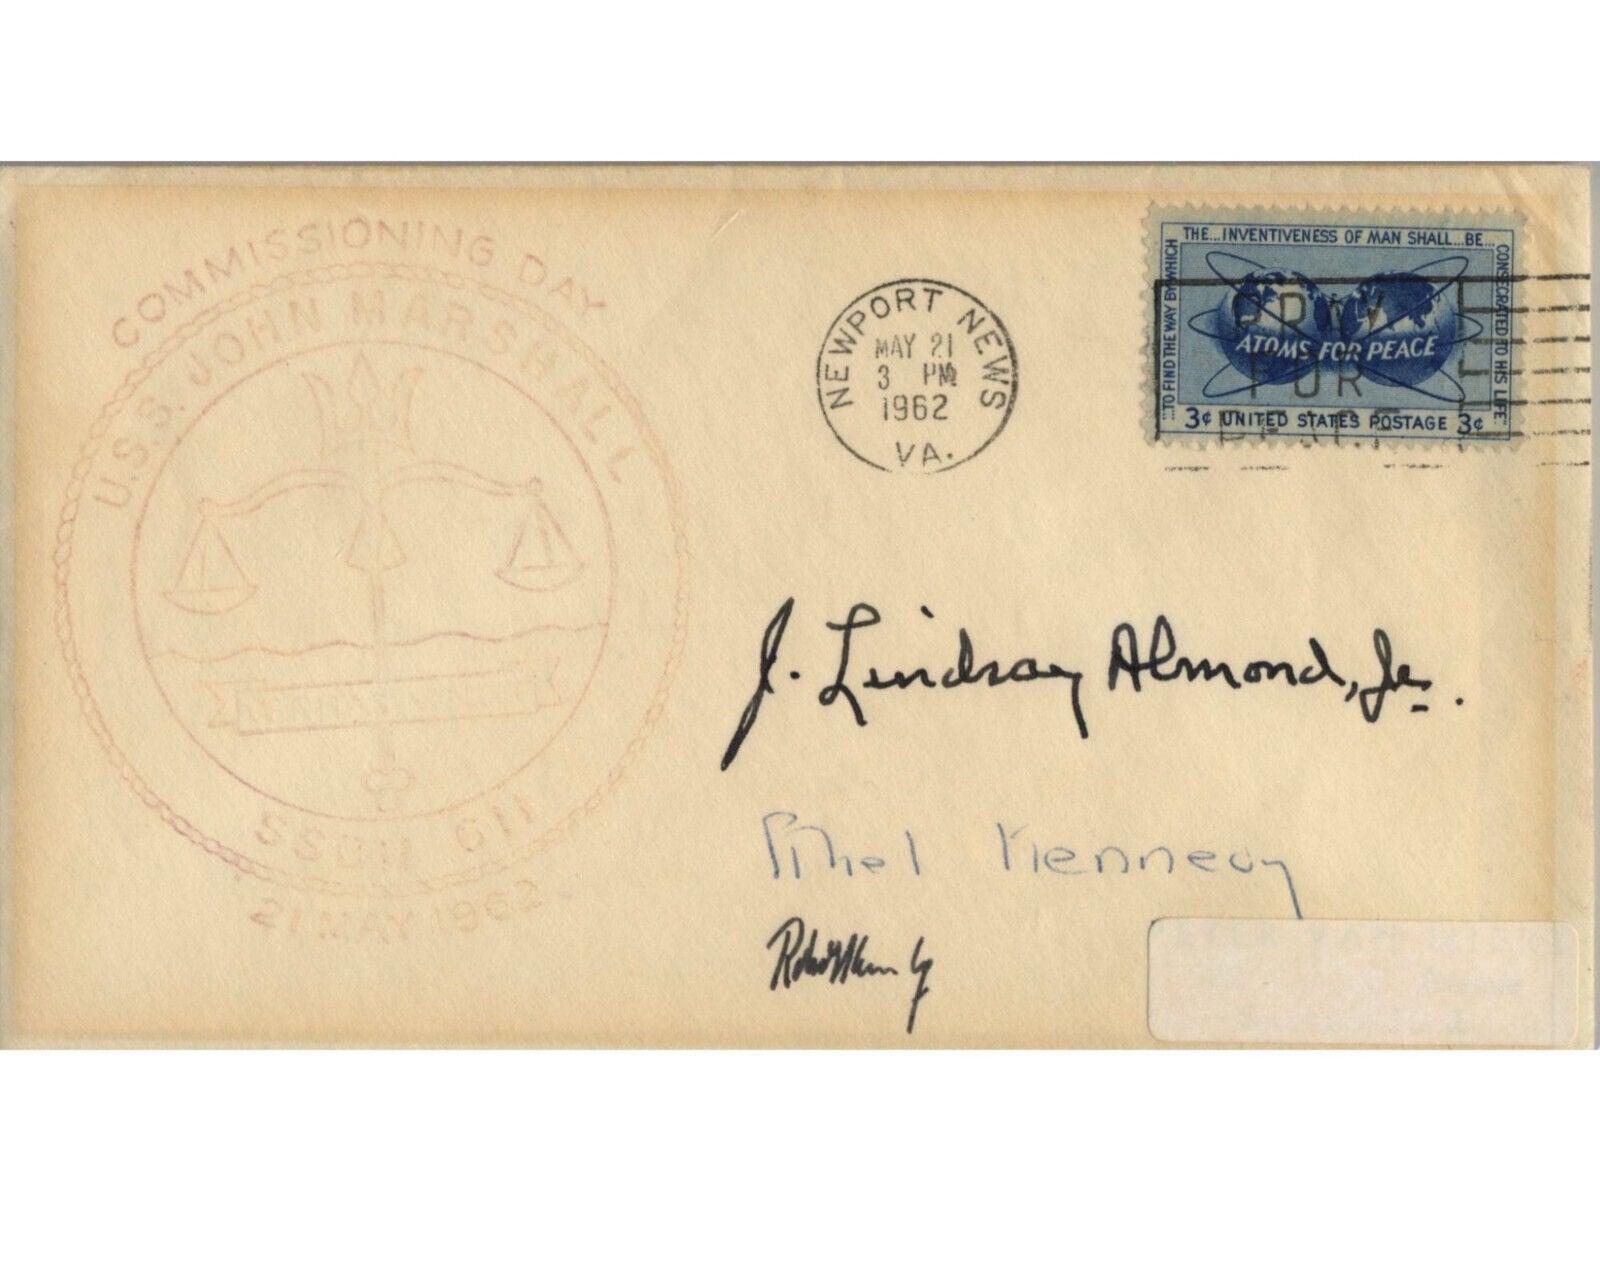 COMMISSIONING DAY
U.S.S. JOHN MARSHALL
SSBN 611
21 MAY 1962
NEWPORT NEWS
MAY 21
3 PM
1962
VA.
THE...INVENTIVENESS OF MAN SHALL...BE...
...TO FIND THE WAY BY WHICH
CONSECRATED TO HIS LIFE"
ATOMS FOR PEACE
3¢ UNITED STATES POSTAGE 3¢
PRAY
FOR
PEACE
J. Lindsay Almond, Jr.
Ethel Kennedy
Robert Kennedy